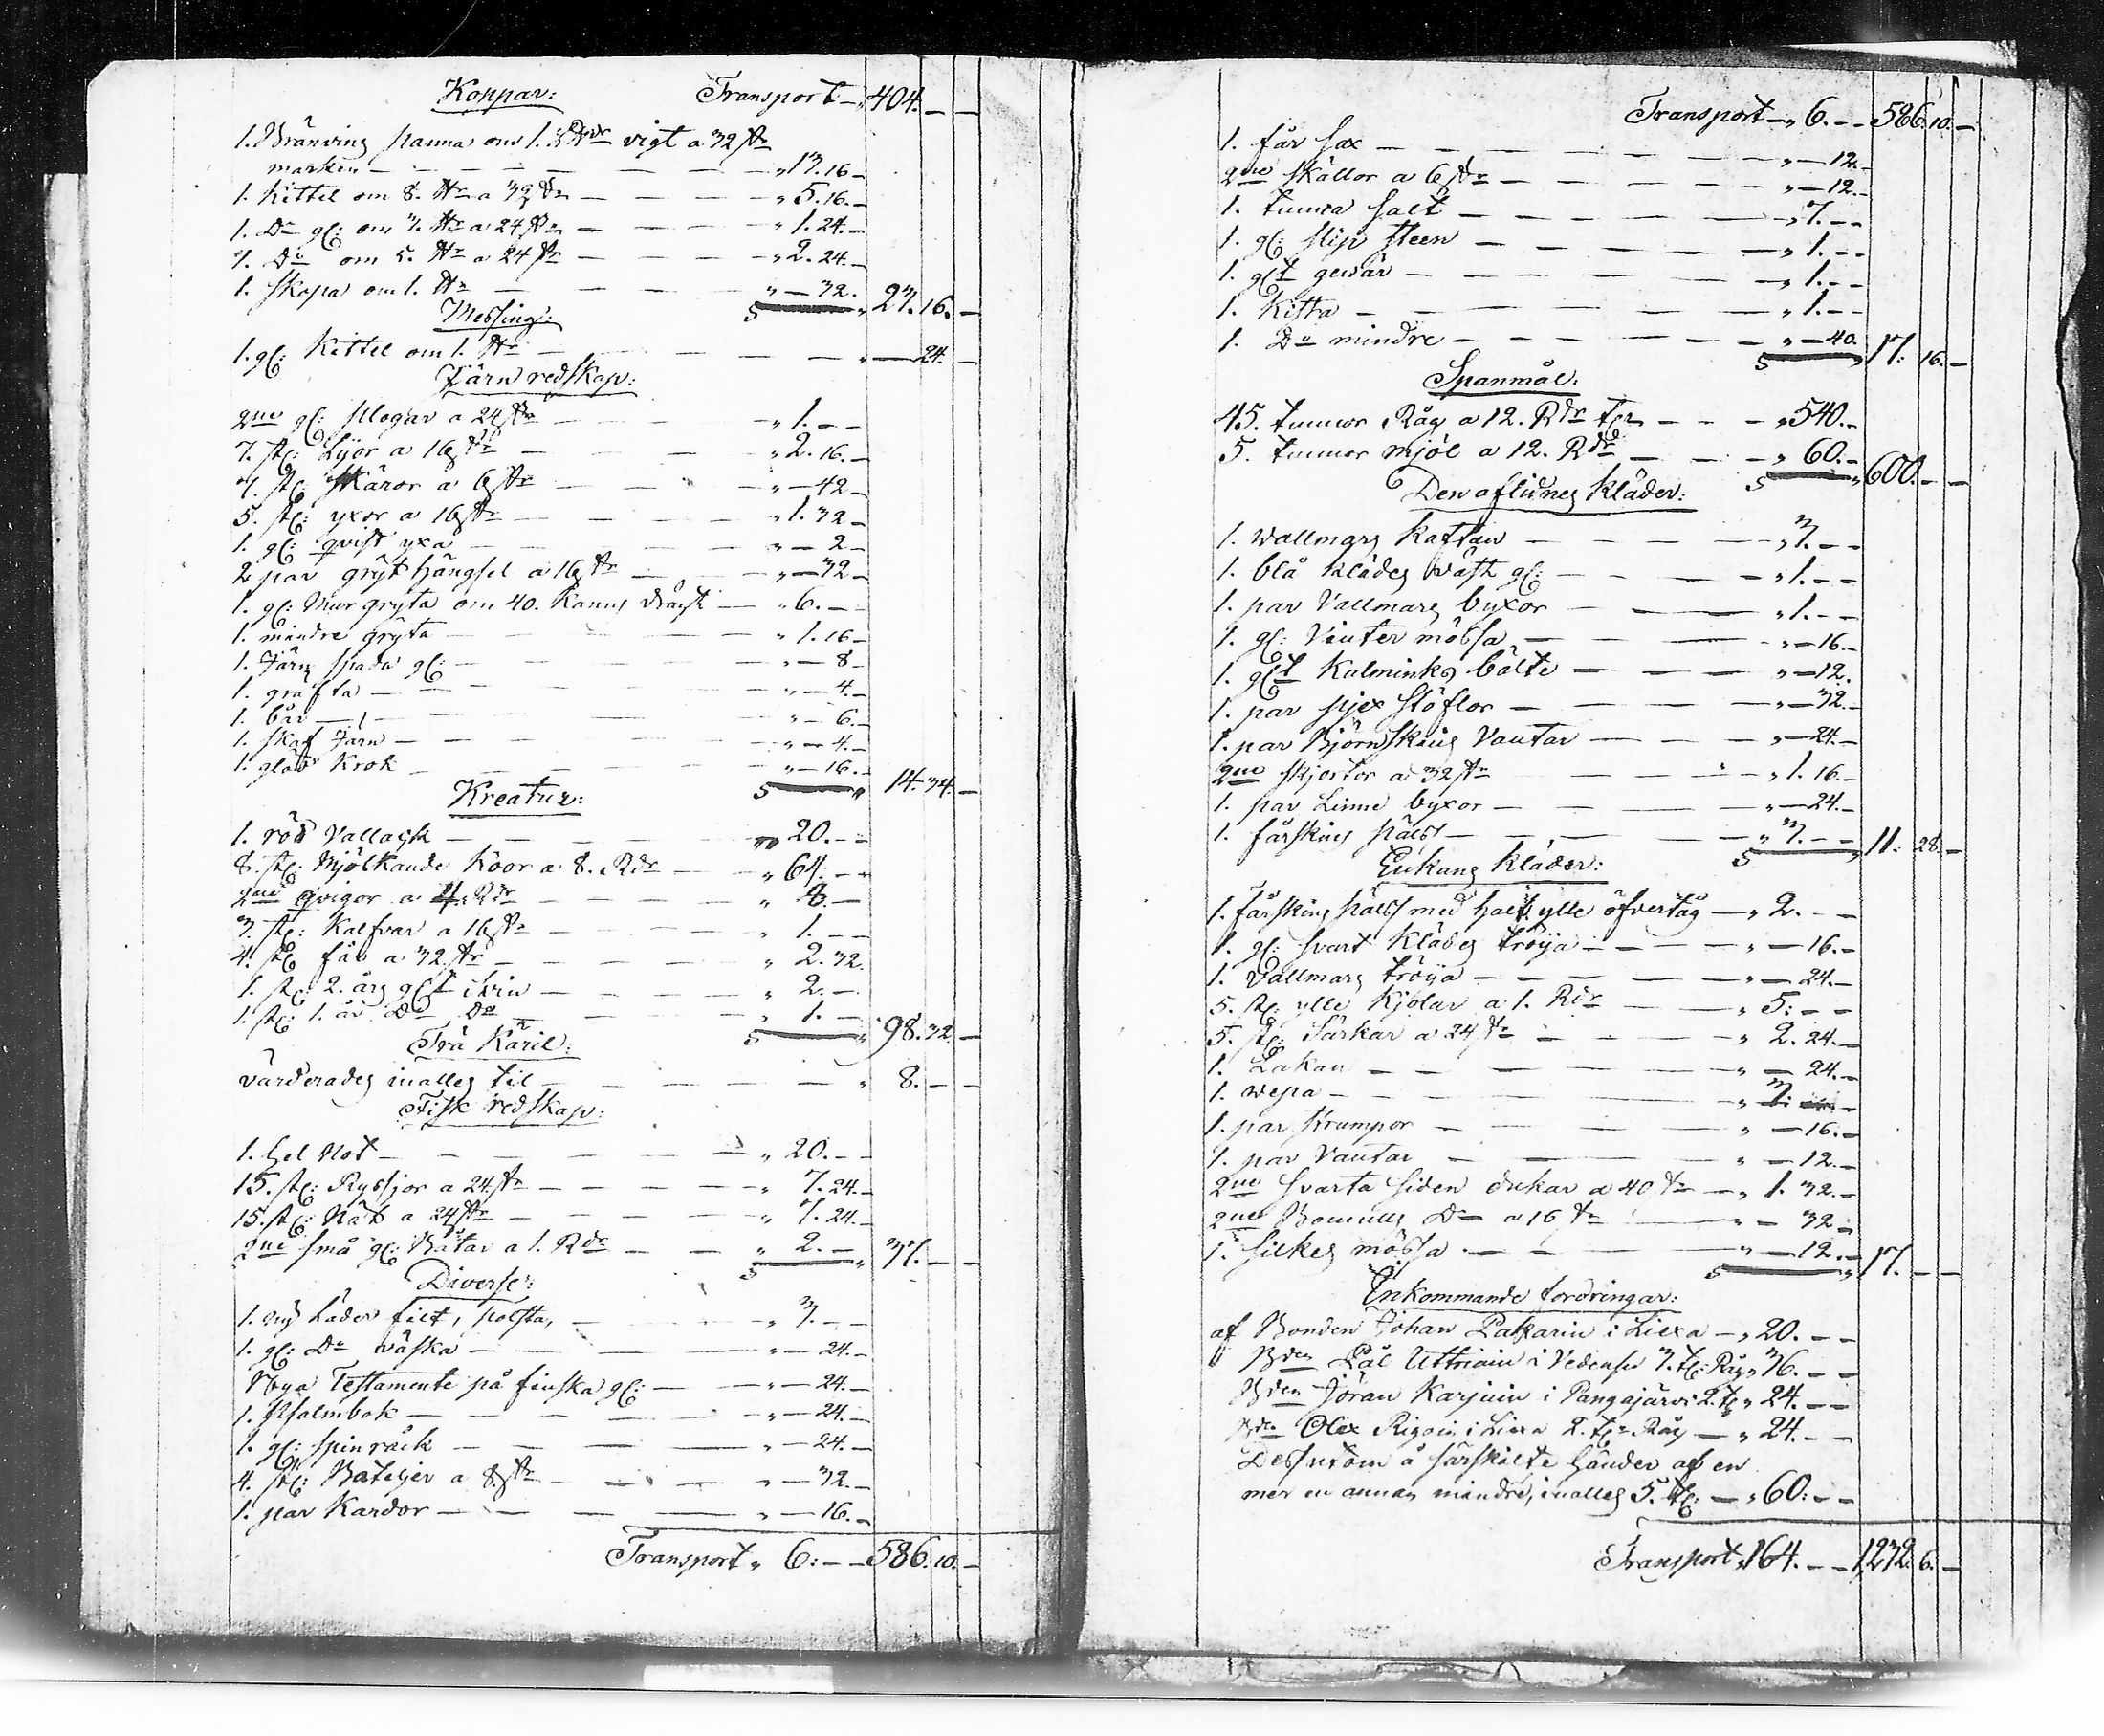 Koppar: Transport — 404. — —
1. Bränvins panna om 1. vigt a 32 s:r
marken — " 17. 16 —
1. Kittel om 8. a 32 s:r — " 5. 16. —
1. D:o gl: om 3. a 24 s:r — " 1. 24. —
1. D:o om 5. a 24 s:r — " 2. 24. —
1. Skopa om 1. — " — 32. 27. 16. —
Messing:
1. gl: Kittel om 1. — " — 24. —
Järn redskap:
2ne gl: plogar a 24 s:r — " 1. — —
7. st: Lijor a 16 s:r — " 2. 16. —
7. st: Skäror a 6 s:r — " — 42 —
5. st: yxor a 16 s:r — " 1. 32 —
1. gl: qvist yxa — " — 2 —
2 par gryt hängsel a 16 s:r — " — 32 —
1. gl: Mur gryta om 40. Kannus — " 6. — —
1. mindre gryta — " 1. 16 —
1. Järn spada gl: — " — 8 —
1. gräfta — " — 4. —
1. bår — " — 6. —
1. skaf Järn — " — 4. —
1. glöd krok — " — 16. — 14. 34. —
Kreatur:
1. röd Vallack — " 20. — —
8. st: Mjölkande Koor a 8. Rdr — " 64. — —
2ne qvigor a 4. Rdr — " 8. —
3. st: Kalfvar a 16 s:r — " 1. — —
4. st: får a 32 s:r — " 2. 32.
1. st: 2. års glt svin — " 2. —
1. st: 1. år D:o D:o — " 1. — 98. 32. —
Trä Käril:
värderades inalles til — " 8. — —
Fisk redskap:
1. hel Not — " 20. — —
15. st: Ryssjor a 24 s:r — " 7. 24. —
15. st: Nät a 24 s:r — " 7. 24. —
2ne små gl: Båtar a 1. Rdr — " 2. — 37. — —
Diverse:
1. ny Läder filt, polsta, — " 3. — —
1. gl: D:o väska — " — 24. —
Nya Testamente på finska gl: — " — 24. —
1. Psalmbok — " — 24. —
1. gl: spinråck — " — 24. —
4. st: a 8 s:r — " — 32. —
1. par Kardor — " — 16. —
Transport " 6: — — 586. 10. —
Transport — " 6. — — 586. 10. —
1. får sax — " — 12. —
2ne skällor a 6 s:r — " — 12. —
1. tunna salt — " 7. — —
1. gl: slip steen — " 1. — —
1. glt gevär — " 1. — —
1. Kista — " 1. — —
1. D:o mindre — " — 40. 17: 16. —
Spanmål:
45. tunnor Råg a 12. Rdr t:n — " 540. —
5. tunnor mjöl a 12. Rdr — " 60. — 600. — —
Den aflidnes Kläder:
1. wallmars kaftan — " 3. — —
1. blå klädes väst gl: — " 1. — —
1. par Vallmars byxor — " 1. — —
1. gl: Vinter mössa — " — 16. —
1. glt Kalminks bälte — " — 12.
1. par pjex stöflor — " — 32. —
1. par Björnskins Vantar — " — 24. —
2ne skjortor a 32 s:r — " 1. 16. —
1. par Linne byxor — " — 24. —
1. fårskins päls — " 3. — — 11: 28. —
Enkans kläder:
1. fårskins päls med half ylle öfvertåg — " 2. — —
1. gl: svart klädes tröija — " — 16. —
1. Vallmars tröija — " — 24. —
5. st: ylle Kjolar a 1. Rdr — " 5: — —
5. st: Särkar a 24 s:r — " 2. 24. —
1. Lakan — " — 24. —
1. wepa — " 3. —
1. par strumpor — " — 16. —
1. par Vantar — " — 12. —
2ne svarta siden dukar a 40 s:r — " 1. 32. —
2ne Bomulls D:o a 16 s:r — " — 32 —
1. silkes mössa — " — 12. — 17. — —
Inkommande fordringar:
af Bonden Johan Pakarin i Liexa — " 20. — —
Bden Pål Uttriain i 3. t: Råg " 36. — —
Bden Jöran Karjain i Pangajärvi 2. t: " 24. — —
Bden Olex Rigoin i Liexa 2. t:r Råg — " 24. — —
Dessutom å särskilte händer af en
mer en annan mindre, inalles 5. t: — " 60: — —
Transport " 164. — — 1,232. 6. —